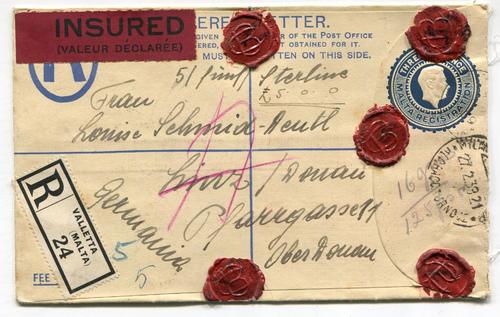 INSURED
(VALEUR DÉCLARÉE)
TERED LETTER.
GIVEN OF THE POST OFFICE
RED, OBTAINED FOR IT.
MUST WRITTEN ON THIS SIDE.
R
THREE PENCE
MALTA. REGISTRATION
5/ Sterling
£5-0-0
Frau
Louise Schmid-
Linz / Donau
Pfarrgasse 11
Oberdonau
Germania
R
VALLETTA
(MALTA)
24
5
5
FEE
169
125
27.2.39.21